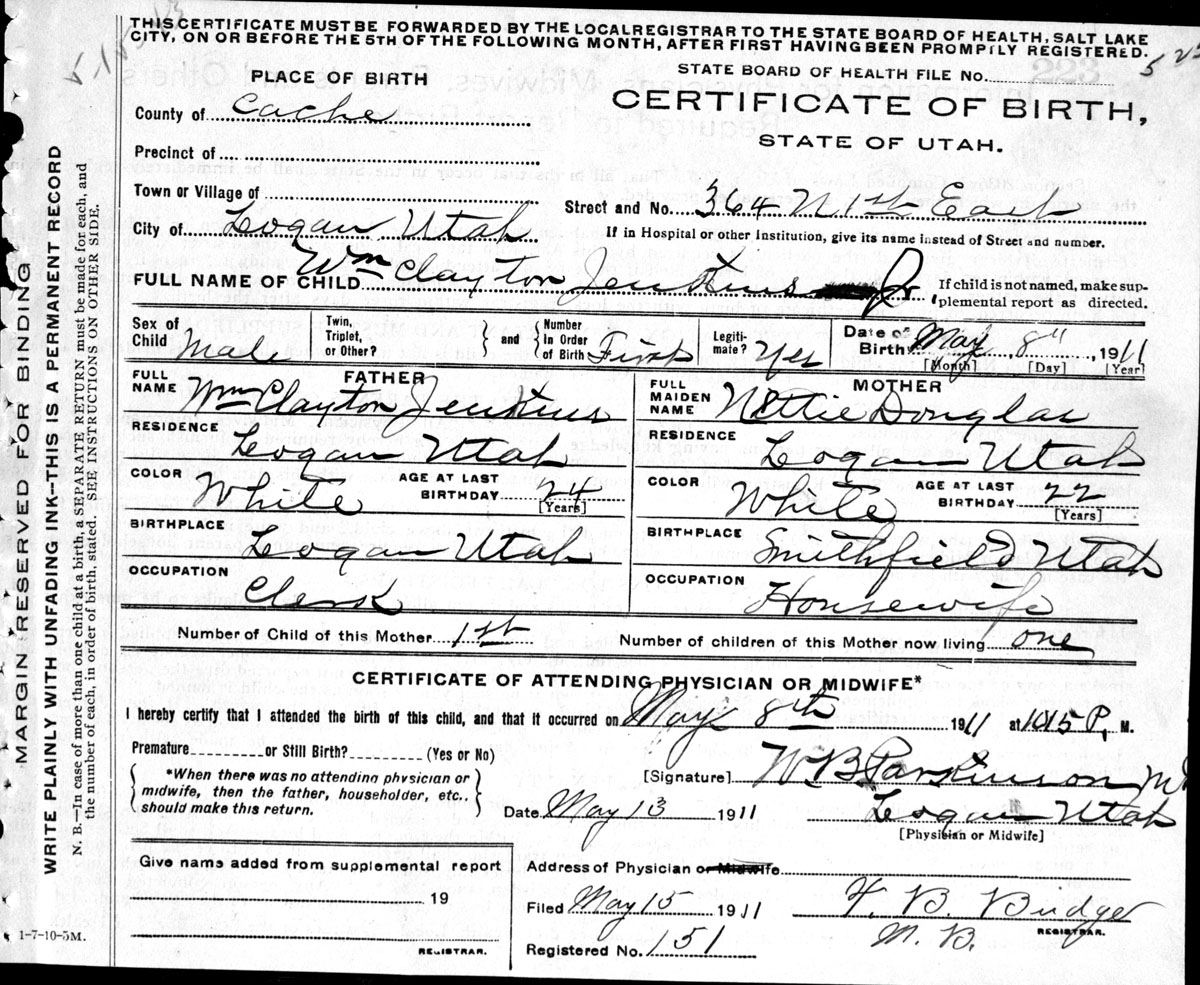 THIS CERTIFICATE MUST BE FORWARDED BY THE LOCALREGISTRAR TO THE STATE BOARD OF HEALTH, SALT LAKE
CITY, ON OR BEFORE THE 5TH OF THE FOLLOWING MONTH, AFTER FIRST HAVING BEEN PROMPILY REGISTERED.
PLACE OF BIRTH
STATE BOARD OF HEALTH FILE No.
County of Cache
CERTIFICATE OF BIRTH,
STATE OF UTAH.
Precinct of
Town or Village of
Street and No. 364 N 1st East
City of Logan Utah
If in Hospital or other Institution, give its name instead of Street and number.
FULL NAME OF CHILD Wm Clayton Jenkins Jr
If child is not named, make sup-
plemental report as directed.
Sex of Child Male
Twin, Triplet, or Other?
and
Number in Order of Birth First
Legiti-mate? Yes
Date of Birth May 8th, 1911
[Month] [Day] [Year]
FATHER
FULL NAME Wm Clayton Jenkins
RESIDENCE Logan Utah
COLOR White
AGE AT LAST BIRTHDAY 24
[Years]
BIRTHPLACE Logan Utah
OCCUPATION Clerk
MOTHER
FULL MAIDEN NAME Nettie Douglas
RESIDENCE Logan Utah
COLOR White
AGE AT LAST BIRTHDAY 22
[Years]
BIRTHPLACE Smithfield Utah
OCCUPATION Housewife
Number of Child of this Mother 1st
Number of children of this Mother now living one
CERTIFICATE OF ATTENDING PHYSICIAN OR MIDWIFE*
I hereby certify that I attended the birth of this child, and that it occurred on May 8th 1911 at 1015 P. M.
Premature or Still Birth? (Yes or No)
*When there was no attending physician or
midwife, then the father, householder, etc.,
should make this return.
[Signature] W B Parkinson M
Date May 13 1911
Logan Utah
[Physician or Midwife]
Give name added from supplemental report
19
REGISTRAR.
Address of Physician or Midwife
Filed May 15 1911
Registered No. 151
B. Budge
REGISTRAR.
1-7-10-5M.
MARGIN RESERVED FOR BINDING
WRITE PLAINLY WITH UNFADING INK—THIS IS A PERMANENT RECORD
N. B.—In case of more than one child at a birth, a SEPARATE RETURN must be made for each, and
the number of each, in order of birth, stated. SEE INSTRUCTIONS ON OTHER SIDE.